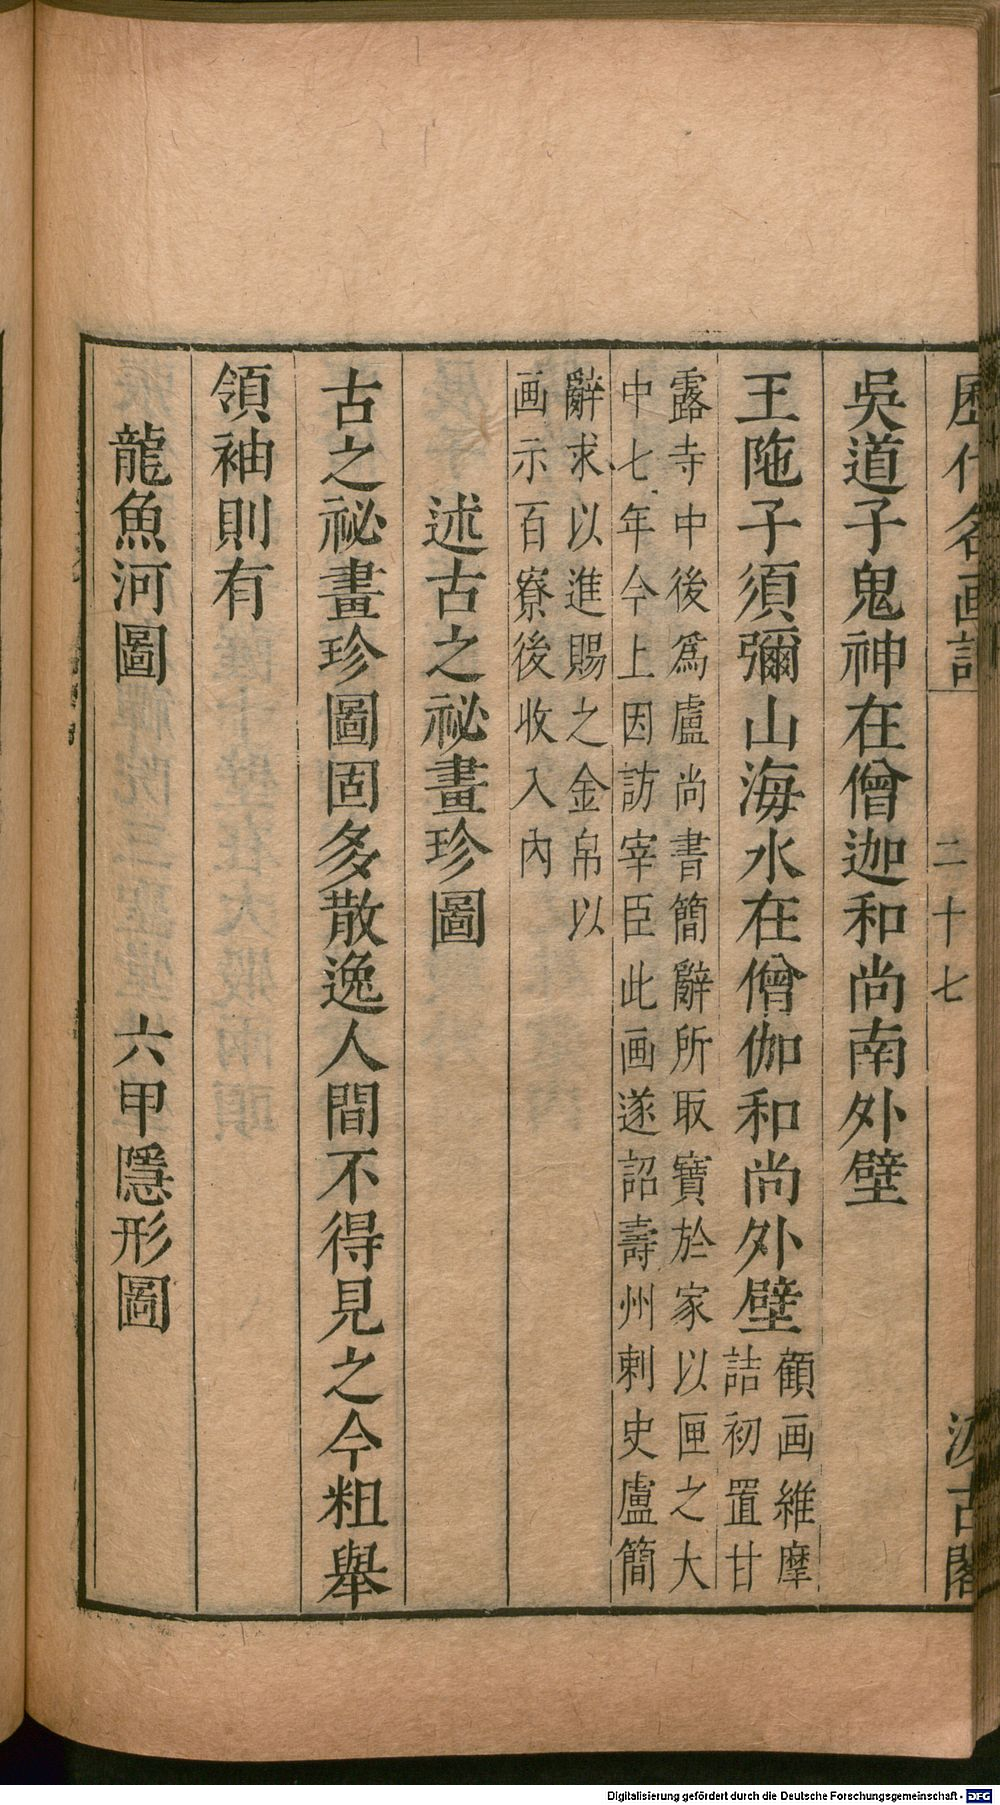 歷代名画記 二十七 汲古閣
吳道子鬼神在僧迦和尚南外壁
王陁子須彌山海水在僧伽和尚外壁顧画維摩
詰初置甘
露寺中後爲盧尚書簡辭所取寶於家以匣之大
中七年今上因訪宰臣此画遂詔壽州刺史盧簡
辭求以進賜之金帛以
画示百寮後收入內
述古之祕畫珍圖
古之祕畫珍圖固多散逸人間不得見之今粗舉
領袖則有
龍魚河圖 六甲隱形圖
Digitalisierung gefördert durch die Deutsche Forschungsgemeinschaft - DFG